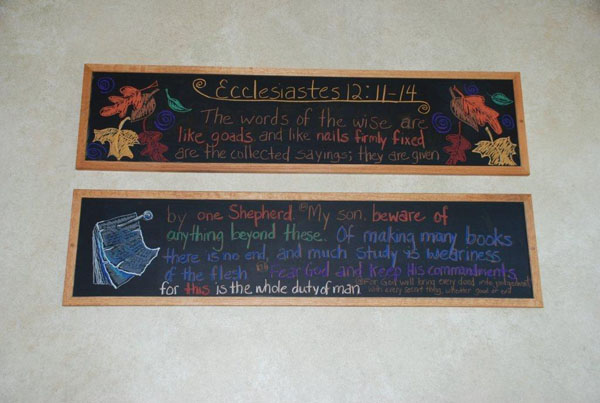 Ecclesiastes 12:11-14
The words of the wise are
like goads and like nails firmly fixed
are the collected sayings; they are given
by one Shepherd. 12 My son, beware of
anything beyond these. Of making many books
there is no end, and much study is weariness
of the flesh. 13 Fear God and keep His commandments,
for this is the whole duty of man.
14 For God will bring every deed into judgement
with every secret thing, whether good or evil